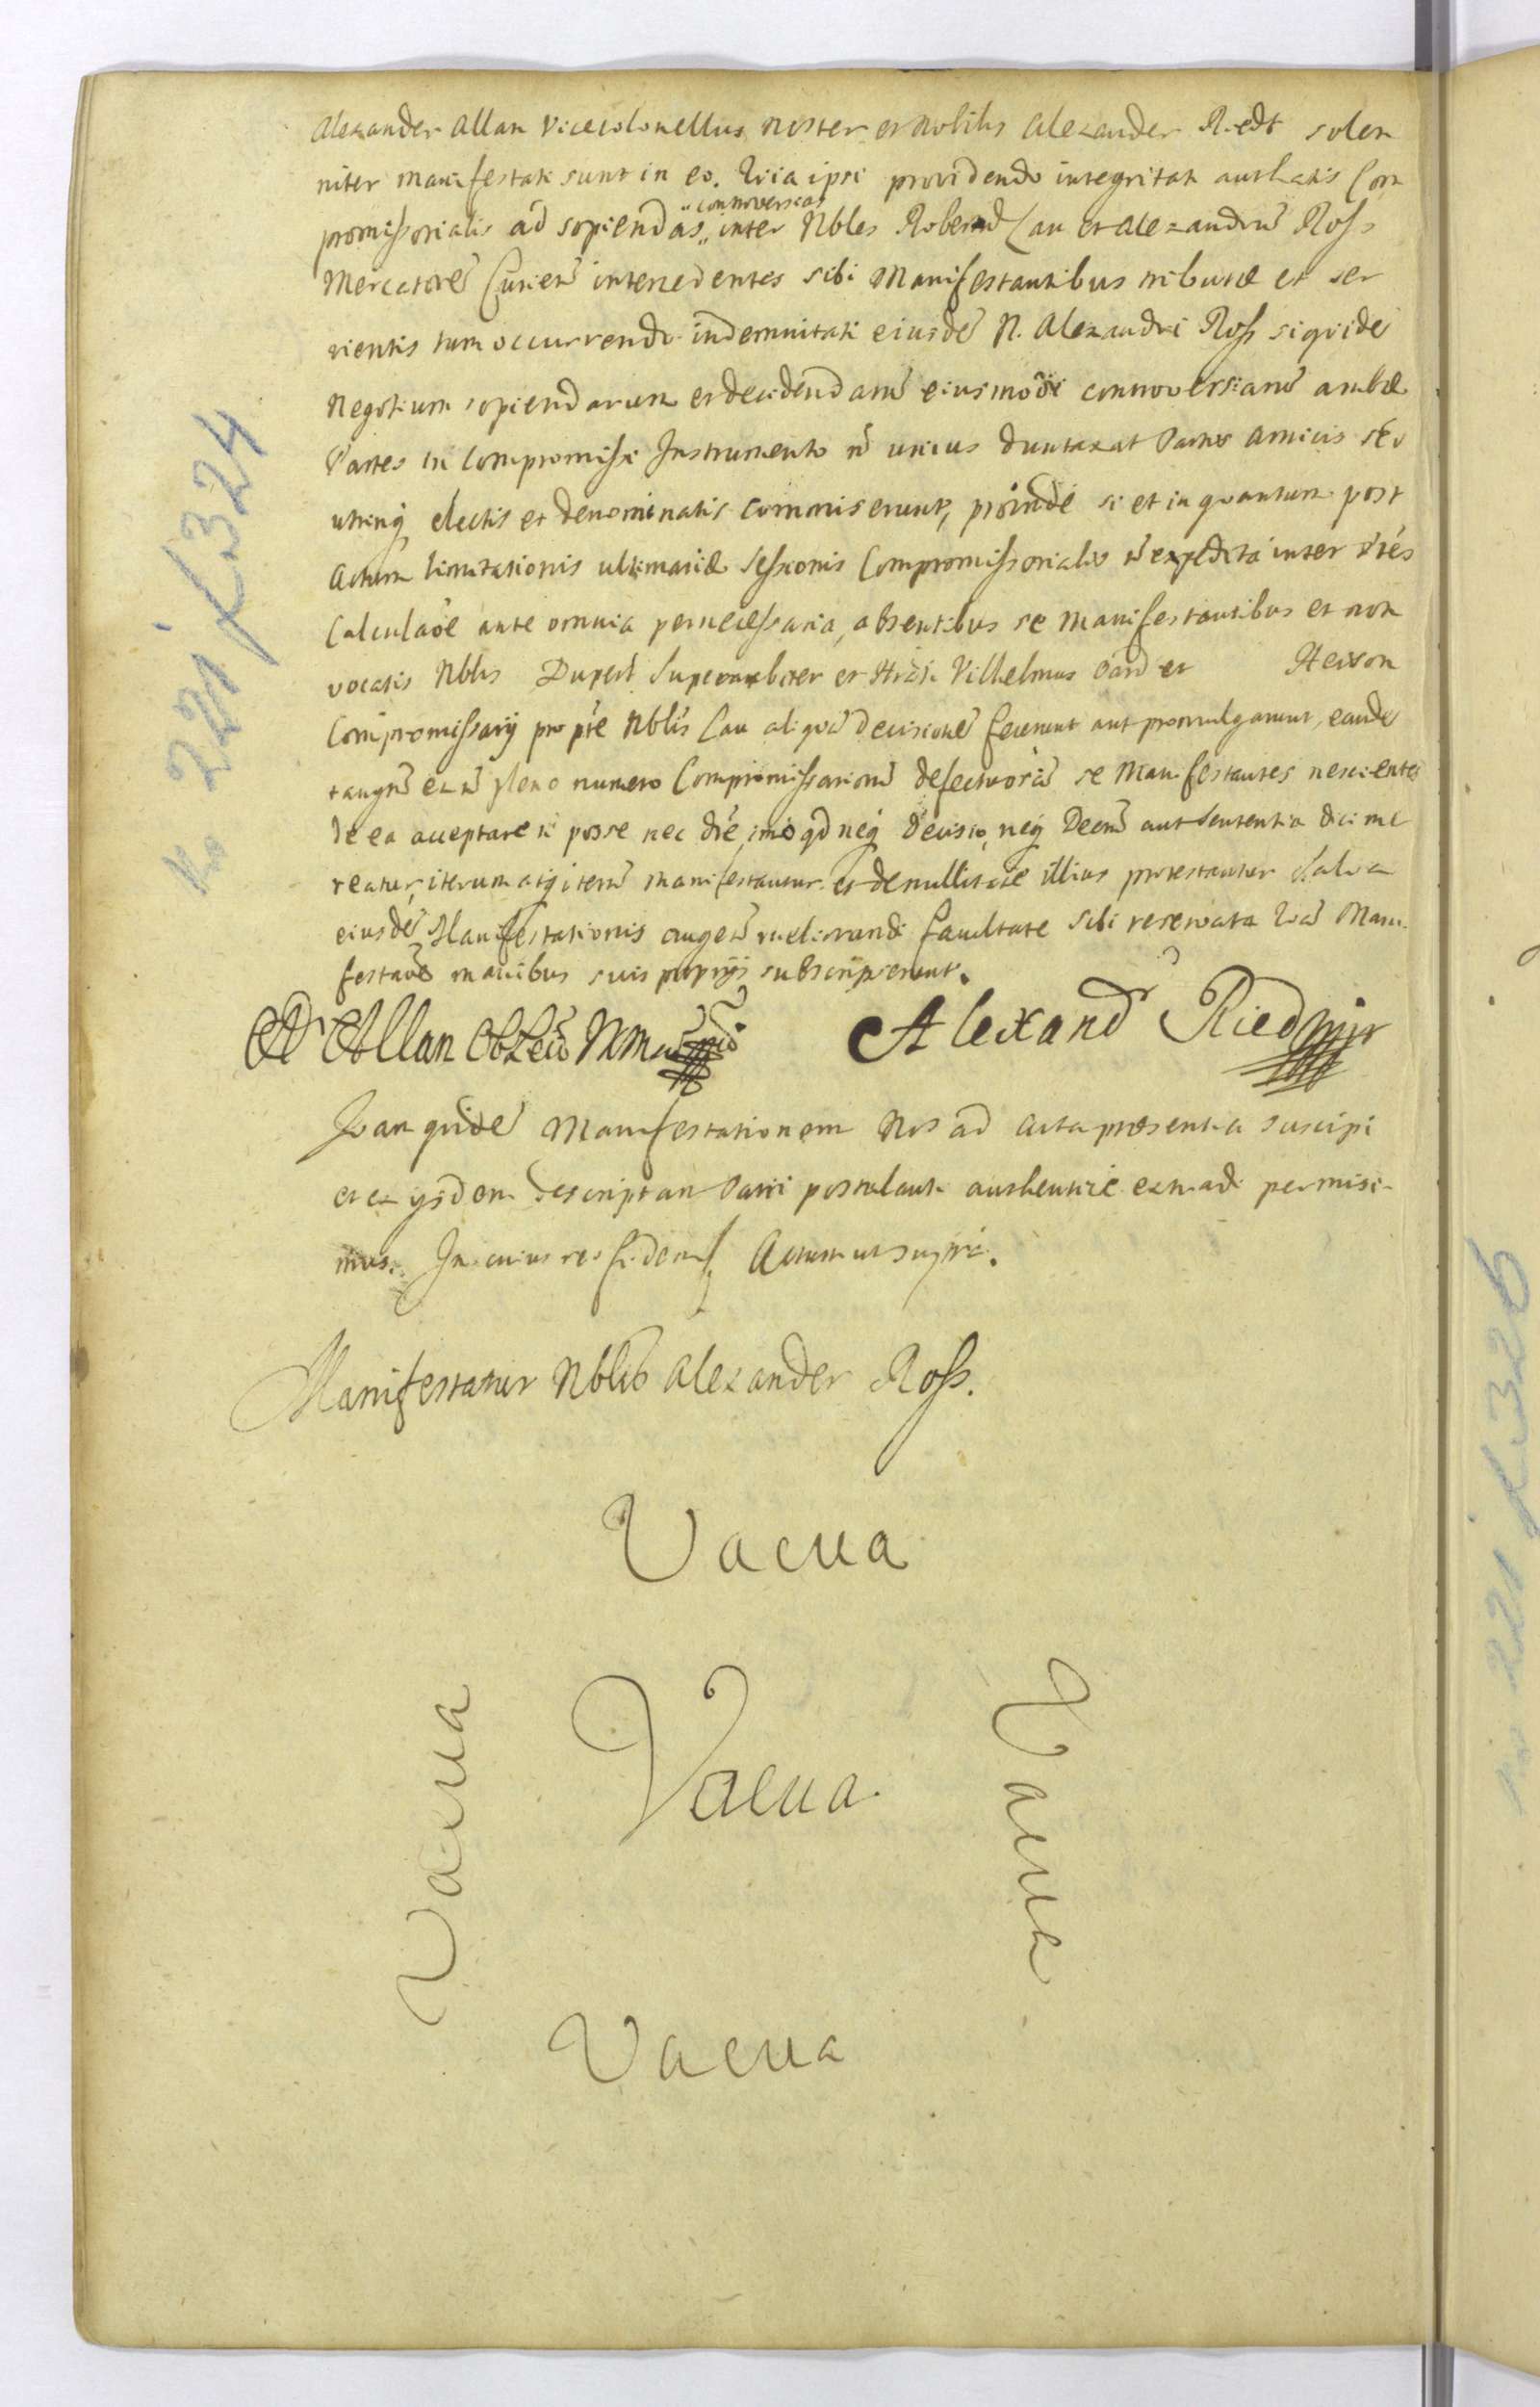 Alexander Allan Vicecolonellus noster et Nobilis Alexander Riedt solen
niter manifestati sunt in eo. Quia ipsi providendo integritati authatis Com
promissorialis ad sopiendas „controversias„ inter Nbles Robertū Lau et Alexandrū Ross
Mercatorē Curien̄ intercedentes sibi Manifestantibus tributæ et ser
vientis tum occurrendo indemnitati eiusdē N. Alexandri Ross siquidē
Negotium sopiendarum et decidendarū eiusmodi controversiarū ambæ
Partes in Compromissi Instrumento nō unius duntaxat Partis amicis sed
utrinq electis et denominatis commiserunt, proindē si et in quantum post
Actum limitationis ultimariæ Sessionis Compromissorialis nō expedita inter ptes
Calculaōe ante omnia pernecessaria, absentibus se Manifestantibus et non
vocatis Nbles Dupert Superarbiter et Vilhelmus et
Compromissarij pro pte Nblis Lau aliquā decisionē fecerunt aut promulgarunt, eandē
tanq̄ ex nō pleno numero Compromissariorū defectuosā se Manifestantes nescientes
de ea acceptare nō posse nec dre, imo qd neq Decisio, neq Decrū aut Sententia dici me
reatur, iterum atq iterū manifestantur et de nullitate illius protestantur Salva
eiusdē Manifestationis augen̄ meliorandi facultate sibi reservata hāc Mani
festaōē manibus suis proprijs subscripserunt.
Allan Alexand Ried mp
Quam quidē Manifestationem Nos ad Acta præsentia suscipi
et ex ijsdem descriptam Parti postulanti authenticē extradi permisi-
mus. In cuius rei fidem Actum ut supra.
Manifestatur Nblis Alexander Ross.
Vacua
Vacua
Vacua
Vacua
Vacua
221 / 324
221 / 326